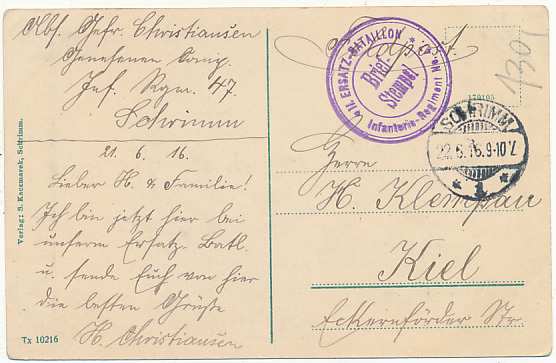 Abs. Gefr. Christiansen
Genesenen Comp.
Inf. Rgm. 47.
Schrimm
21. 6. 16.
Lieber H. & Familie!
Ich bin jetzt hier bei
unserm Ersatz. Batl.
u. sende Euch von hier
die besten Grüße
H. Christiansen
Verlag: S. Kaczmarek, Schrimm.
Tx 10216
Feldpost.
II. ERSATZ-BATAILLON
Infanterie-Regiment No. 47
Brief-
Stempel
1301
SCHRIMM
22.6.16.9-10V.
1
Herrn
H. Klempau
Kiel
Eckernförder Str.